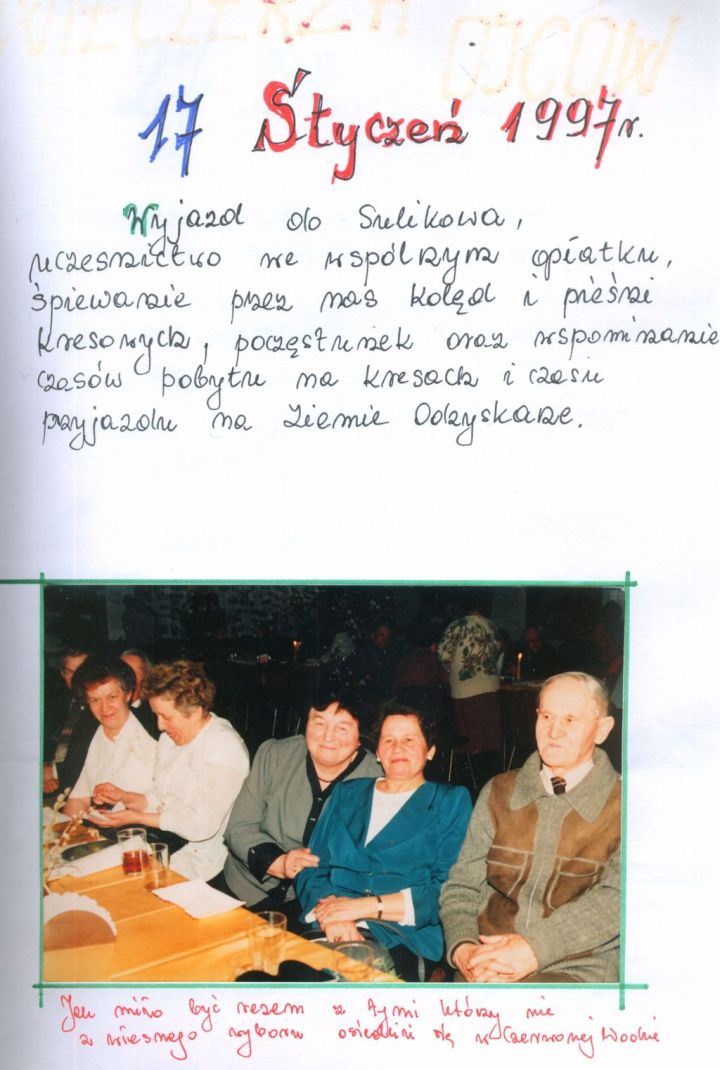 WIECZERZA OJCÓW
17 Styczeń 1997r.
Wyjazd do Sulikowa,
uczesnictwo we wspólnym opłatku,
śpiewanie przez nas kolęd i pieśni
kresowych, poczęstunek oraz wspominanie
czasów pobytu na kresach i czasu
przyjazdu na Ziemie Odzyskane.
Jak miło być razem z tymi którzy nie
z własnego wyboru osiedlili się w Czerwonej Wodzie